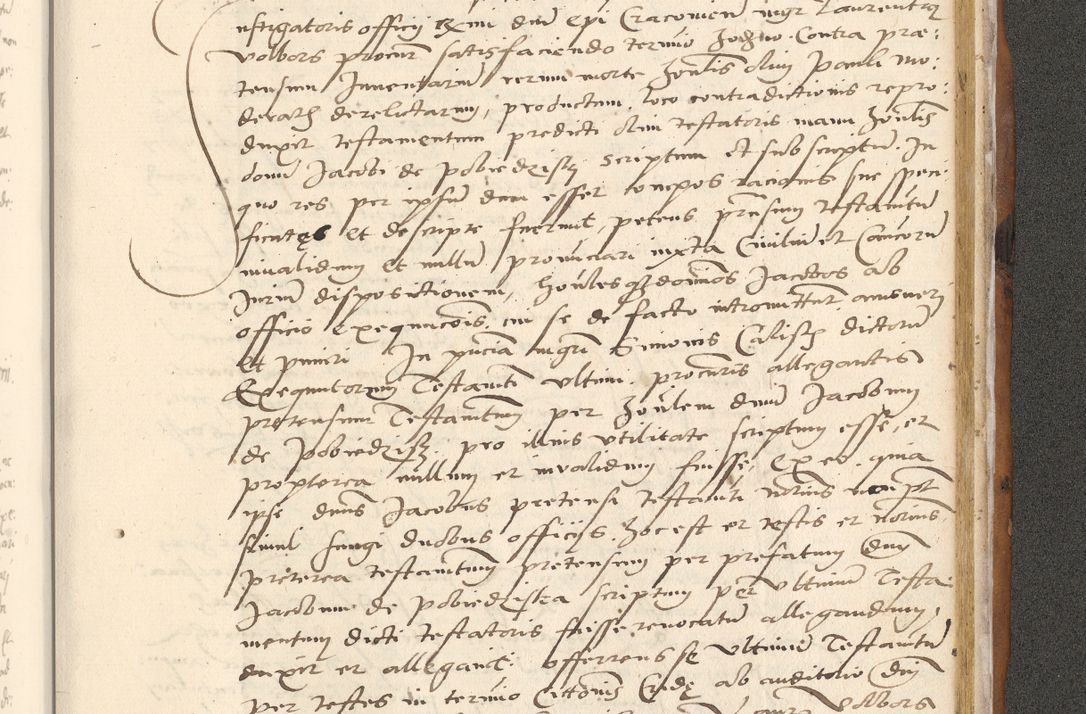 nstigatoris officij Rmi dni Epi Cracovien mgr Laurentij
Volbors procur satisfaciendo termio hodierno Contra præ:
tensum Inventarium rerum morte honlis olim Pauli Mo:
derelictarum, productum, loco contradictionis repro:
duxit testamentum predicti olim testatoris manu honlis
domi Jacobi de Pobiedzisk scriptum et subscriptum. In
quo res per ipsum dum esset compos racionis sue speci:
ficatas et descripte fuerunt, petens prnsum testamentu
invalidum et nullum pronunciari iuxta Civilium et Canonum
Jurium dispositionem, honles dominos Jacobos ab
officio exequucois, cui se de facto intromittunt
et puniri In pncia mgri Simonis Calisk dictorum
Exequutorum Testamti ultimi procuris allegantis
pretensum Testamentum per honlem dnum Jacobum
de Pobiedzisk, pro illius utilitate scriptum esse, et
propterea nullum et invalidum fuisse, Ex eo quia
ipse dnus Jacobus pretensi testamti notarius non pt
simul fungi duobus officijs, hoc est et testis et notarius
preterea testamentum pretensum per prefatum dnum
Jacobum de Pobiedziska scriptum per ultimum Testa
mentum dicti testatoris fuisse revocatum allegandum,
duxit et allegavit. offerens se ultimum Testamentum
per testes in termio Cittonis ab auditorio dni
Volbors